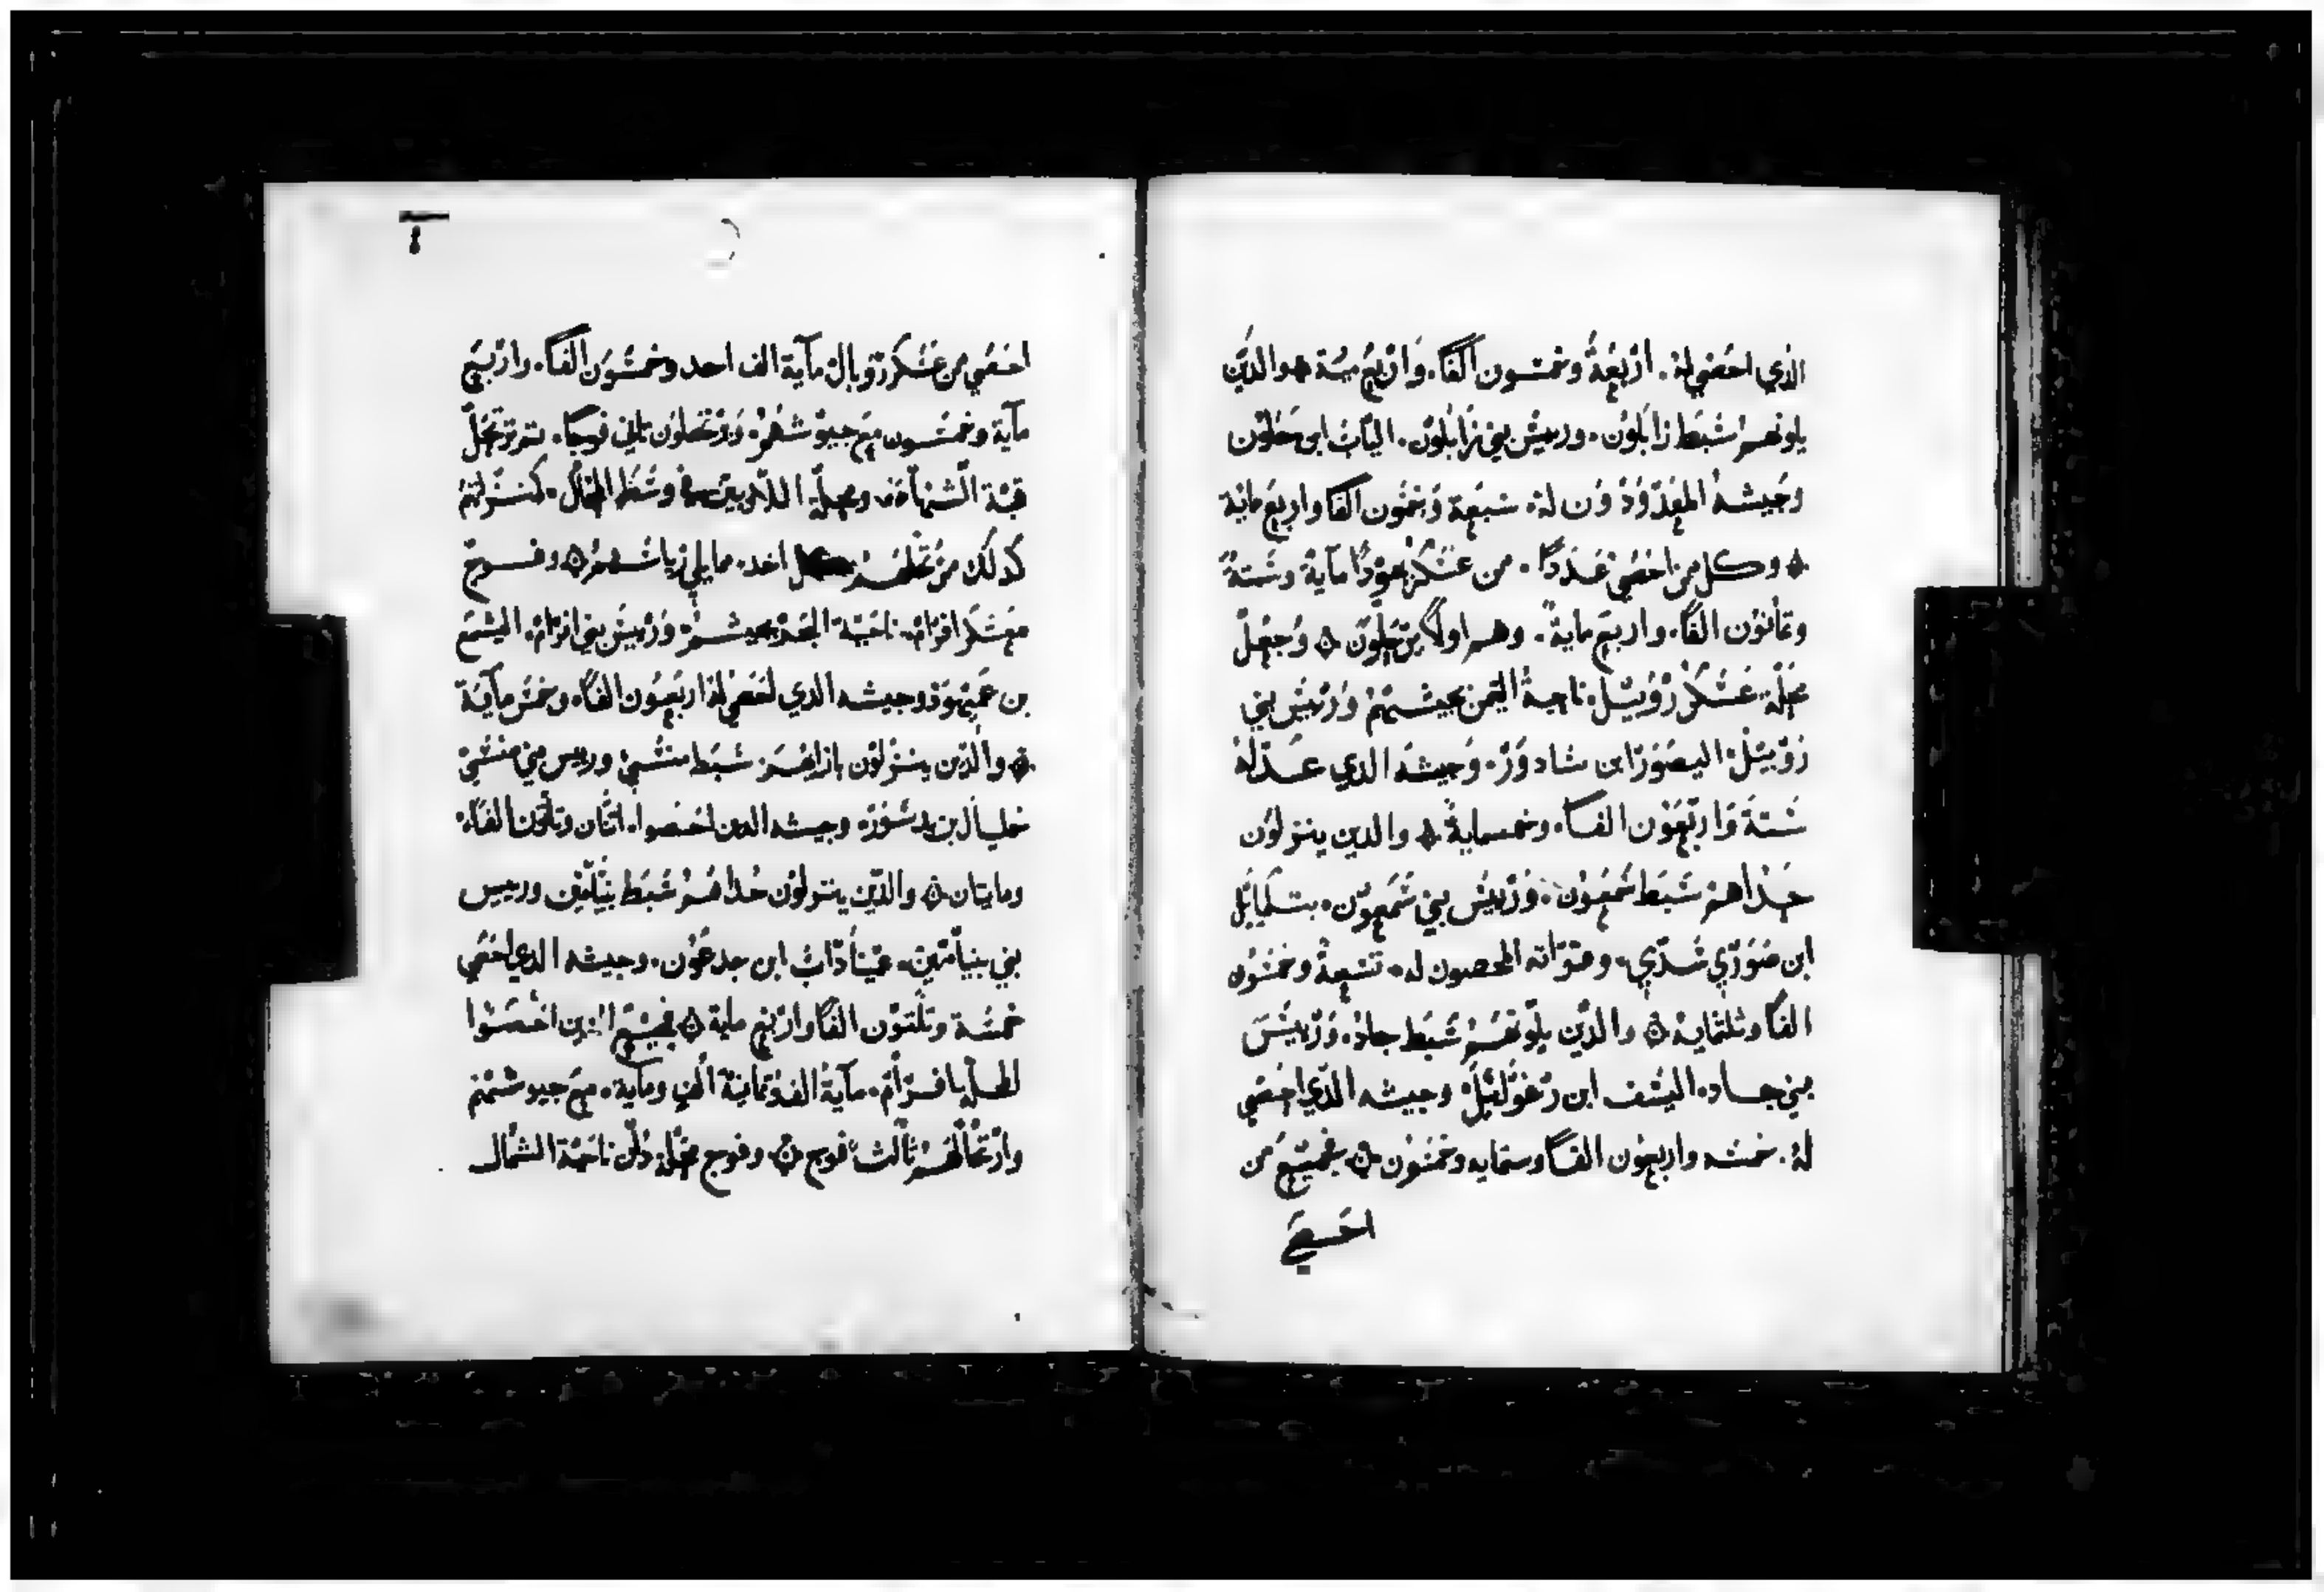 الذي احصي له. اربعة وخمسون الفا. واربع مية ۞ والدين
يلونهم شبط زابلون. ورييس بني زابلون. الياب ابن حلون
وجيشه المعدودون له. سبعة وخمسون الفا واربع ماية
۞ وكل من احصي عددا. من عسكر يهودا ماية وستة
وتمانون الفا. واربع ماية. وهم اولا يرتحلون ۞ وجعل
محلة عسكر روبيل. ناحية اليمن بجيشهم ورييس بني
روبيل. اليصور ابن شادور. وجيشه الدي عد له
ستة واربعون الفا. وخمسماية ۞ والدين ينزلون
حداهم شبط شمعون. ورييس بني شمعون. بتلماييل
ابن صوري شدي. وقواته المحصون له. تسعة وخمسون
الفا وثلثماية ۞ والدين يلونهم شبط جاد. ورييس
بني جاد. اليسف ابن رعوليل. وجيشه الدي احصي
له. خمسه واربعون الفا وستمايه وخمسون ۞ فجميع من
احصي
احصي من عسكر روبال. ماية الف احد وخمسون الفا. واربع
ماية وخمسون مع جيوشهم. ويرتحلون تاني فوجا. تم ترتحل
قبة الشهادة. ومحلة اللاويين في وسط المحال. كنزلتهم
كدلك مرتحلهم كل احد. مما يلي رياستهم ۞ وفوج
معسكر افرام. ناحية البحر بجيشهم. ورييس بني افرام. اليشمع
بن عميهود وجيشه الدي احصي له اربعون الفا. وخمس ماية
۞ والدين ينزلون بازاهم. شبط منشي ورييس بني منشي
خمليال بن يدشور. وجيشه الدين احصوا. اتنان وتلتون الفا.
ومايتان ۞ والدين ينزلون حداهم شبط بنيامين ورييس
بني بنيامين. عيناداب ابن جدعون. وجيشه الدي احصي
خمسة وتلتون الفا واربع ماية ۞ فجميع الدين احصوا
لمحلة افرام. ماية الف وتمانية الف وماية. مع جيوشهم
وارتحالهم تالت فوج ۞ وفوج محلة دان ناحية الشمال